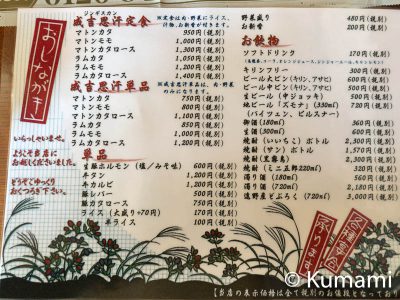 おしながき
いらっしゃいませ。
ようこそ当店に
お越しくださいました。
どうぞごゆっくり
おくつろぎ下さい。
ジンギスカン
成吉思汗定食
※定食は肉・野菜にライス、
汁物、お新香が付きます。
マトンカタ 950円(税別)
マトンモモ 1,000円(税別)
マトンカタロース 1,300円(税別)
ラムカタ 1,050円(税別)
ラムモモ 1,200円(税別)
ラムカタロース 1,400円(税別)
成吉思汗単品
※成吉思汗単品は、肉・野菜
のみになります。
マトンカタ 700円(税別)
マトンモモ 800円(税別)
マトンカタロース 1,100円(税別)
ラムカタ 850円(税別)
ラムモモ 1,000円(税別)
ラムカタロース 1,200円(税別)
単品
生豚ホルモン(塩/みそ味) 600円(税別)
牛タン 1,200円(税別)
牛カルビ 1,200円(税別)
豚レバー 500円(税別)
豚カタロース 700円(税別)
ライス(大盛り+70円) 170円(税別)
半ライス 100円(税別)
野菜盛り 480円(税別)
お新香 200円(税別)
お飲物
ソフトドリンク 170円(税別)
キリンフリー 360円(税別)
ビール大ビン(キリン,アサヒ) 600円(税別)
ビール中ビン(キリン,アサヒ) 500円(税別)
生ビール(中ジョッキ) 500円(税別)
地ビール「ズモナ」(330㎖) 720円(税別)
(バイツェン、ピルスナー)
御酒(180㎖) 360円(税別)
生酒(300㎖) 600円(税別)
焼酎(いいちこ)ボトル 2,000円(税別)
焼酎(サン)ボトル 1,500円(税別)
焼酎(黒霧島) 2,300円(税別)
焼酎(ミニ五郎220㎖) 320円(税別)
濁り酒(180㎖) 560円(税別)
濁り酒(720㎖) 2,180円(税別)
遠野産どぶろく(720㎖) 3,000円(税別)
各種宴会
承ります
【当店の表示価格は全て税別のお値段となっており
© Kumami